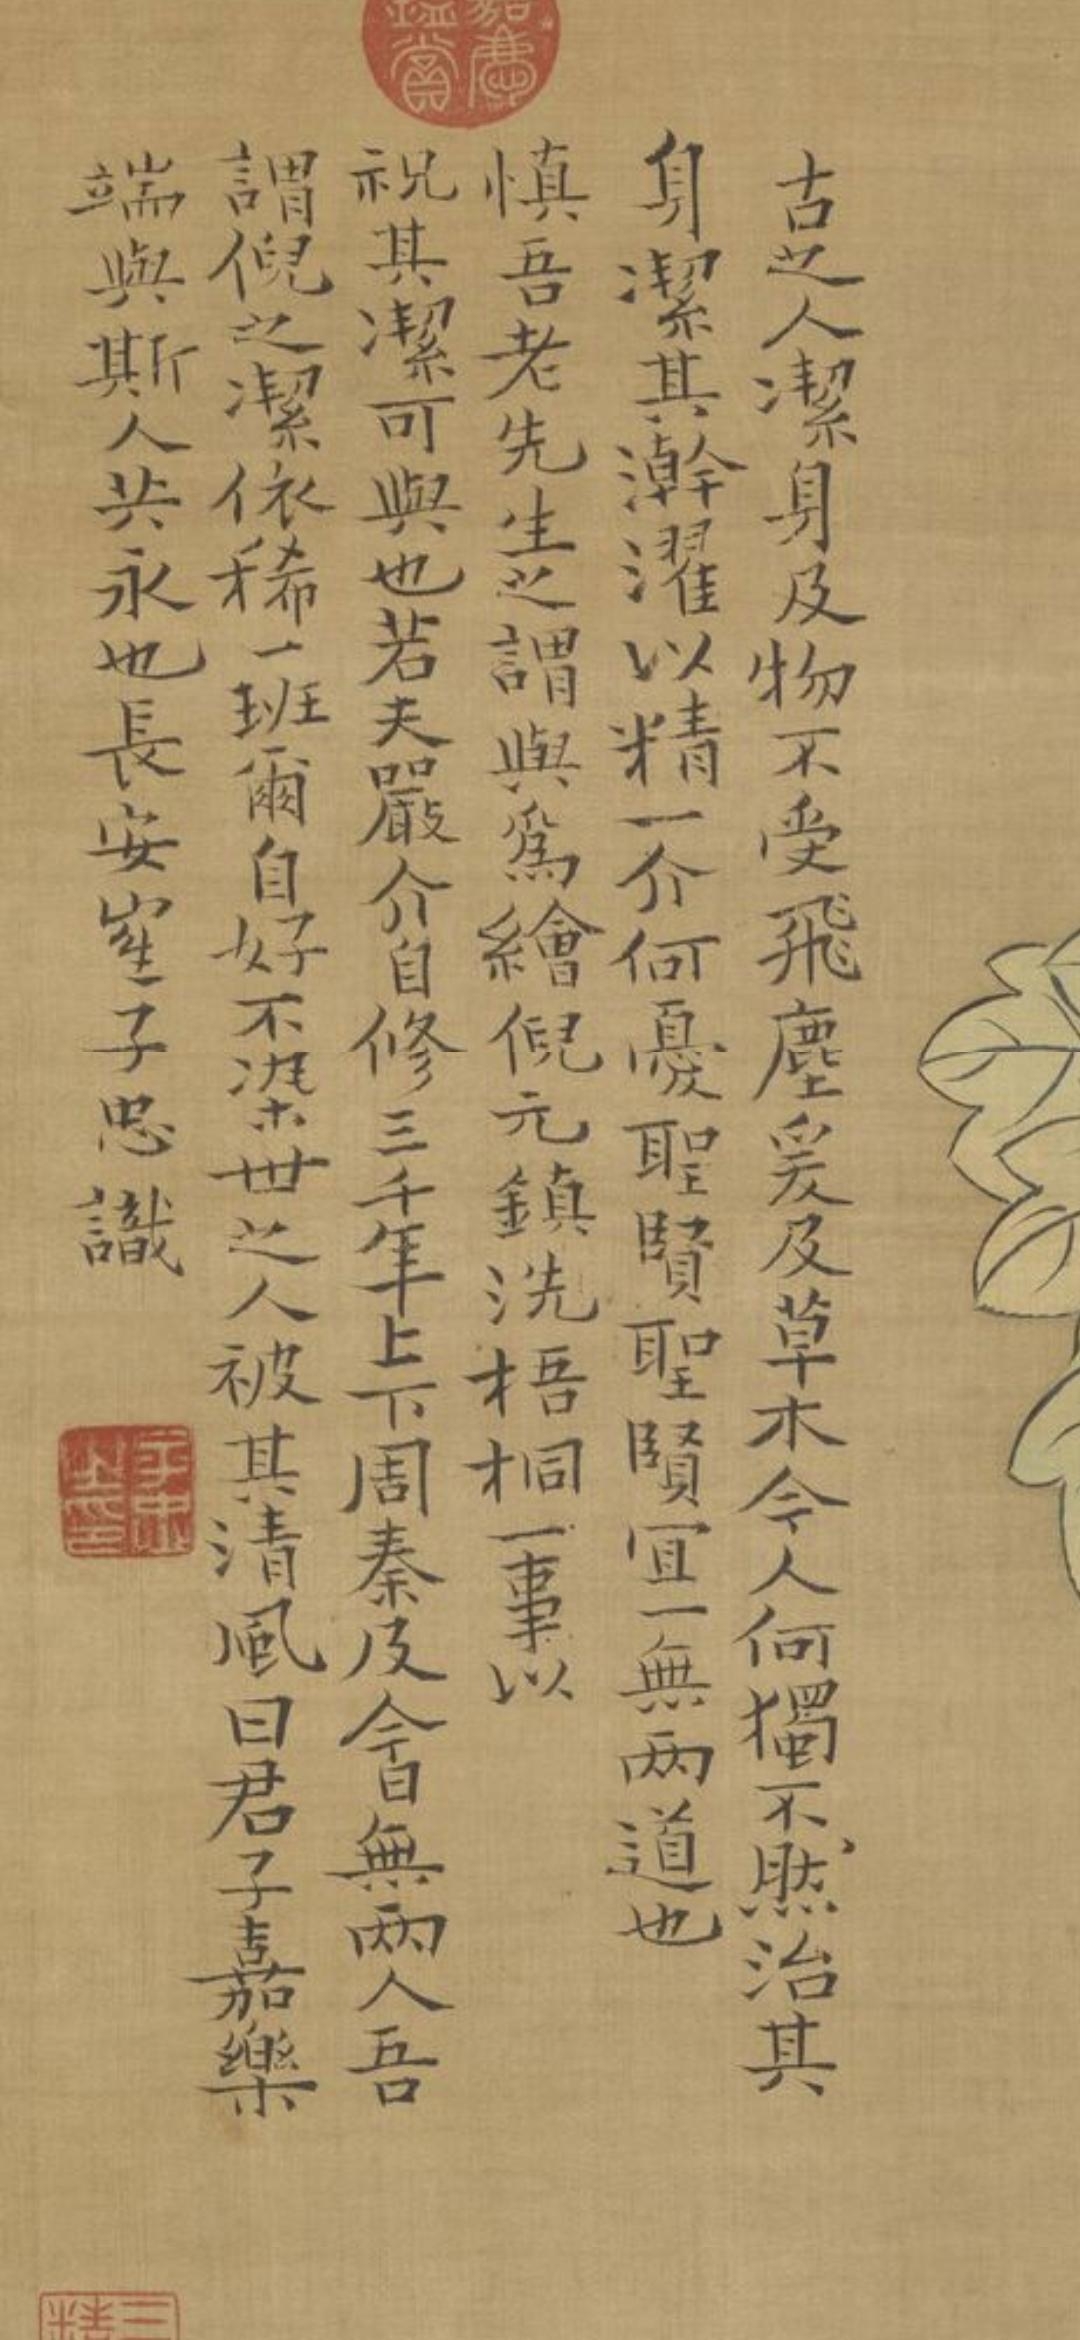 古之人潔身及物不受飛塵爰及草木今人何獨不然治其
身潔其澣濯以精一介何憂聖賢聖賢宜一無两道也
慎吾老先生之謂與爲繪倪元鎮洗梧桐一事以
祝其潔可與也若夫嚴介自修三千年上下周秦及今日無兩人吾
謂倪之潔依稀一班爾自好不染世之人被其清風曰君子嘉樂
端與斯人共永也長安崔子忠識
嘉慶鑑賞
子忠之印
三